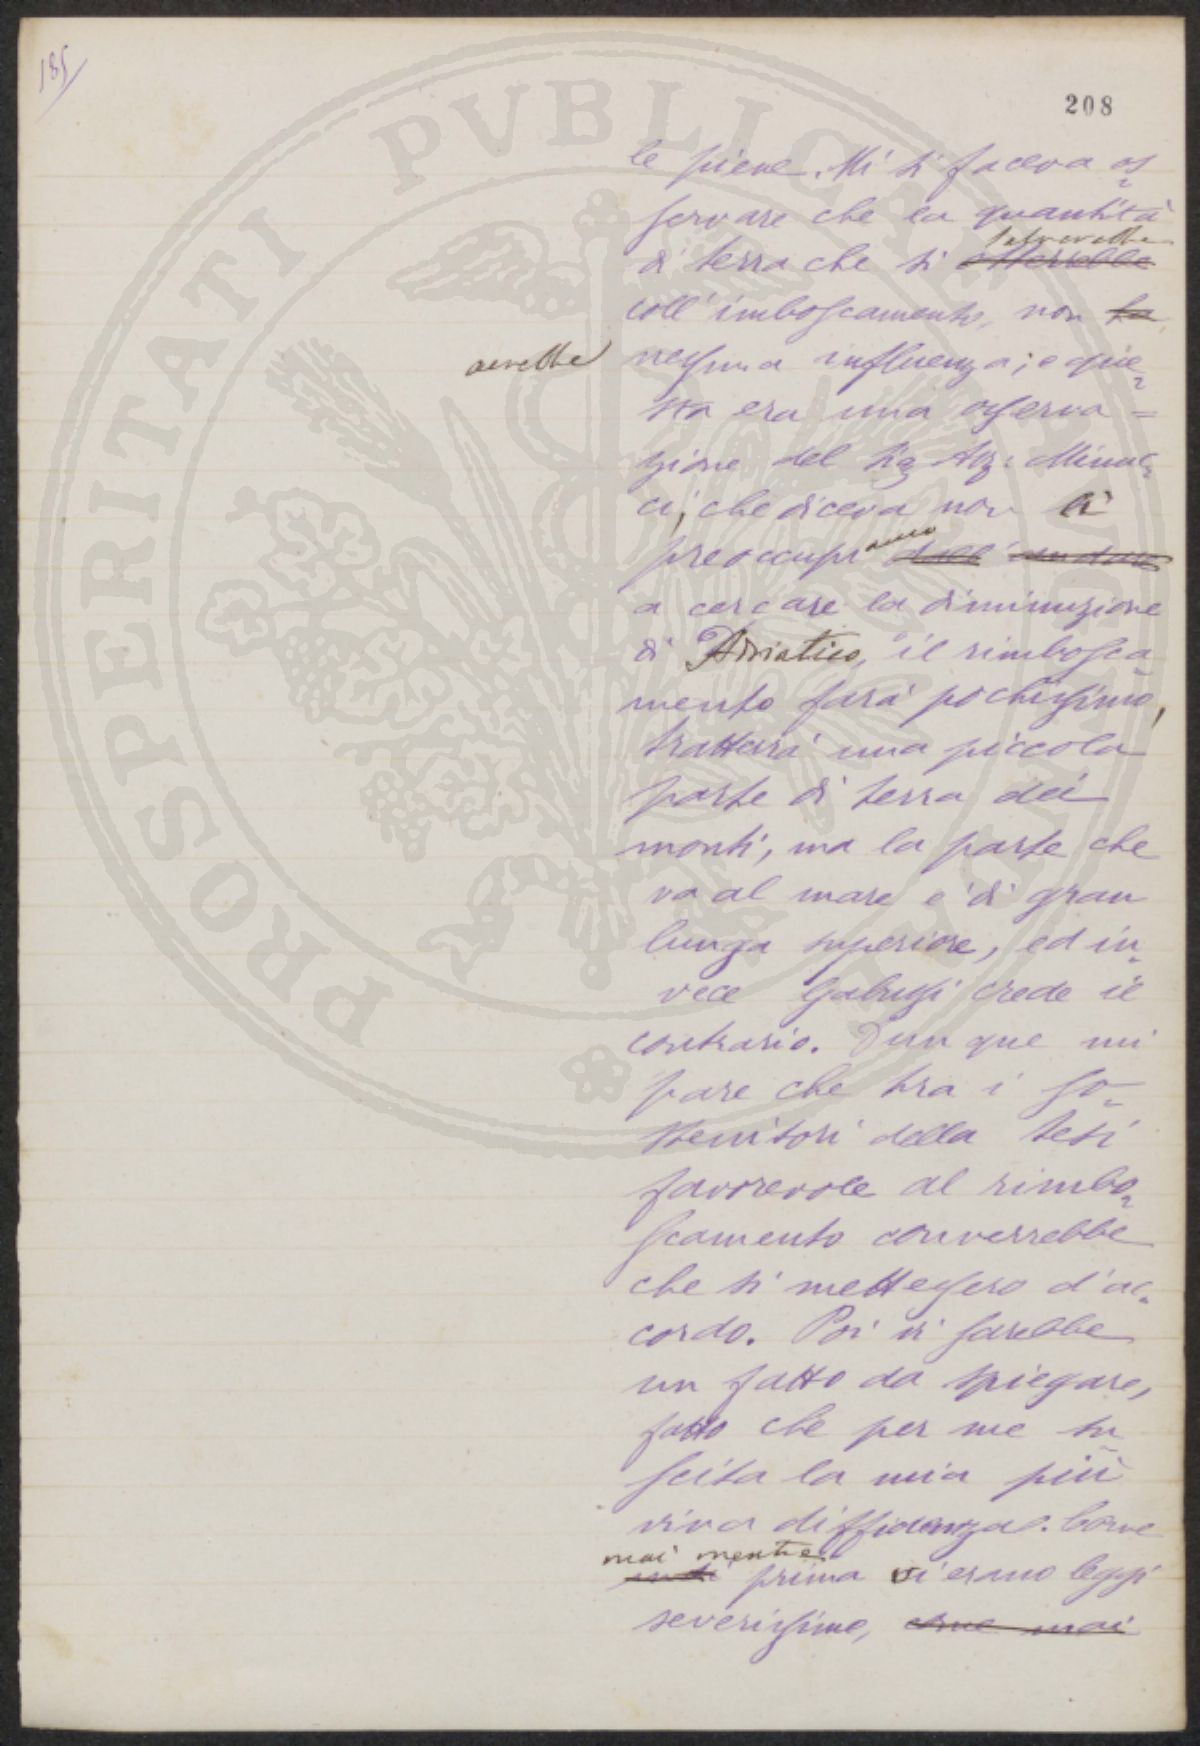 185
208
le piene. Mi si faceva os=
servare che la quantità
salverebbe
di terra che si otterrebbe
coll'imboscamento, non ha
avrebbe
nessuna influenza; e que=
sta era una osserva=
zione del Sig. Avv. Minuc=
ci, che diceva non li
preoccupi dall' andare
a cercare la diminuzione
di Adriatico, il rimbosca
mento farà pochissimo,
tratterrà una piccola
parte di terra dei
monti, ma la parte che
va al mare è di gran
lunga superiore, ed in=
vece Gabussi crede il
contrario. Dunque mi
pare che tra i so=
stenitori della tesi
favorevole al rimbo=
scamento converrebbe
che si mettessero d'ac=
cordo. Poi vi sarebbe
un fatto da spiegare,
fatto che per me su
scita la mia più
viva diffidenza. Come
mai mentre
prima vi erano leggi
severissime, come mai
PROSPERITATI PVBLICAE